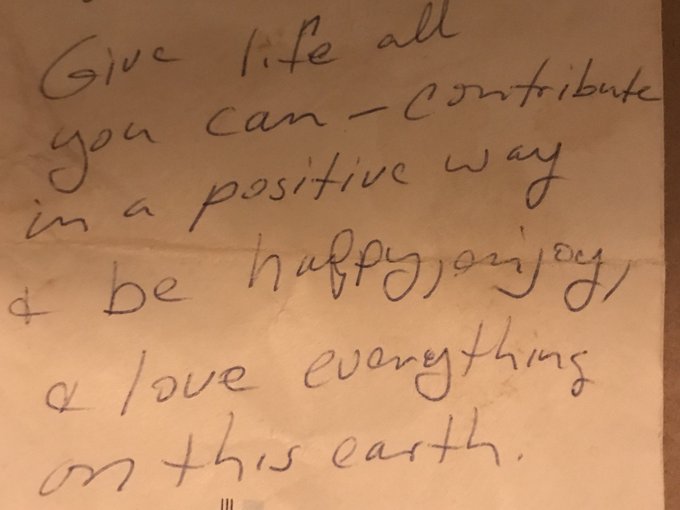 Give life all
you can - contribute
in a positive way
& be happy, enjoy,
& love everything
on this earth.